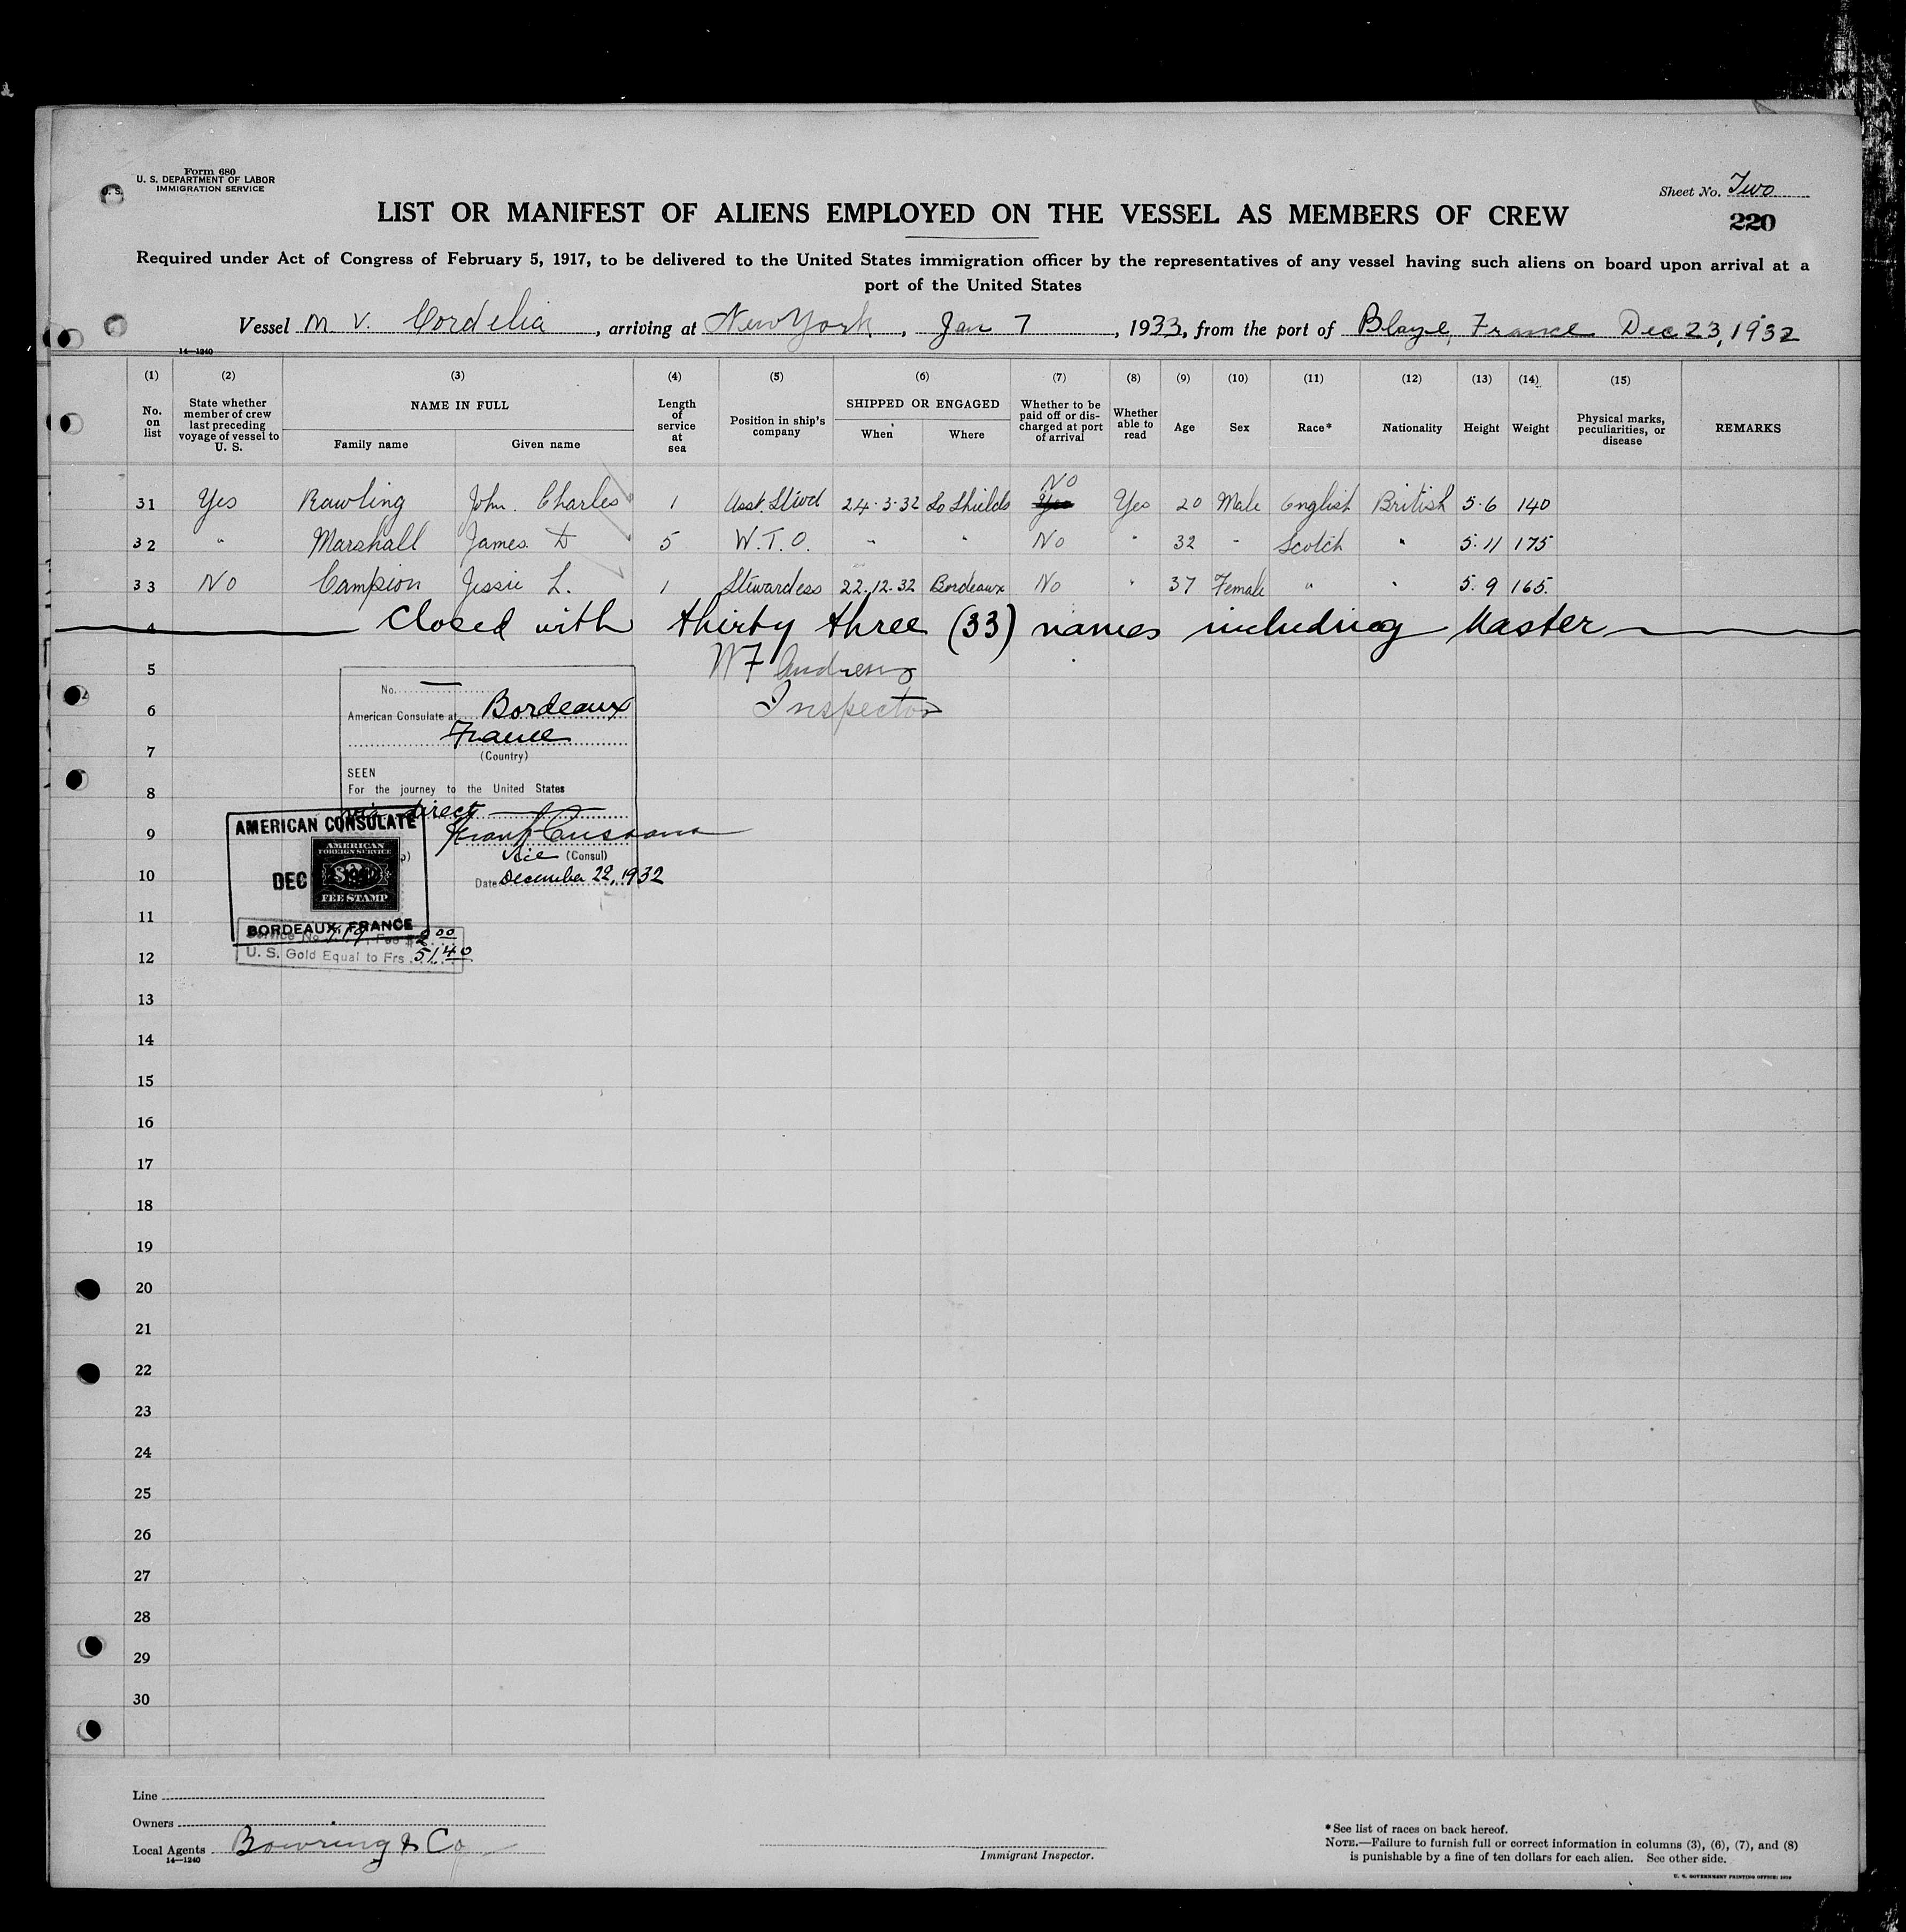 Form 680
U. S. DEPARTMENT OF LABOR
IMMIGRATION SERVICE
U. S.
Sheet No. Two
220
LIST OR MANIFEST OF ALIENS EMPLOYED ON THE VESSEL AS MEMBERS OF CREW
Required under Act of Congress of February 5, 1917, to be delivered to the United States immigration officer by the representatives of any vessel having such aliens on board upon arrival at a
port of the United States
Vessel M V. Cordelia, arriving at New York, Jan 7, 1933, from the port of Blaye, France Dec 23, 1932
14—1240
(1) (2) (3) (4) (5) (6) (7) (8) (9) (10) (11) (12) (13) (14) (15)
No. on list
State whether member of crew last preceding voyage of vessel to U. S.
NAME IN FULL
Family name
Given name
Length of service at sea
Position in ship's company
SHIPPED OR ENGAGED
When
Where
Whether to be paid off or discharged at port of arrival
Whether able to read
Age
Sex
Race*
Nationality
Height
Weight
Physical marks, peculiarities, or disease
REMARKS
No
31 Yes Rawling John. Charles 1 Asst. Stwd 24·3·32 So Shields Yes Yes 20 Male English British 5·6 140
32 " Marshall James D 5 W.T.O. " " No " 32 " Scotch " 5·11 175
33 No Campion Jessie L. 1 Stewardess 22.12.32 Bordeaux No " 37 Female " " 5·9 165.
4 Closed with thirty three (33) names including Master
W F Andrews
Inspector
5
6
7
8
9
10
11
12
13
14
15
16
17
18
19
20
21
22
23
24
25
26
27
28
29
30
No.
American Consulate at Bordeaux
France
(Country)
SEEN
For the journey to the United States
via direct
Vice (Consul)
Date December 22, 1932
AMERICAN CONSULATE
AMERICAN
FOREIGN SERVICE
DEC
FEE STAMP
BORDEAUX, FRANCE
Service No. 719, Fee $2.00
U. S. Gold Equal to Frs 51.40
Line
Owners
Local Agents Bowring & Co
14—1240
Immigrant Inspector.
*See list of races on back hereof.
NOTE.—Failure to furnish full or correct information in columns (3), (6), (7), and (8)
is punishable by a fine of ten dollars for each alien. See other side.
U. S. GOVERNMENT PRINTING OFFICE: